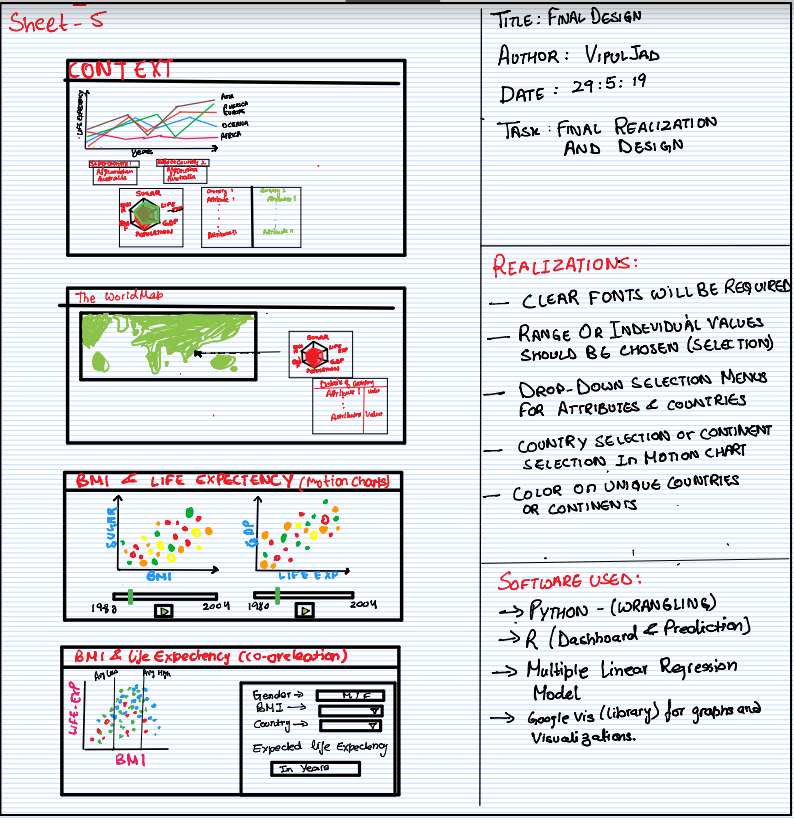 Sheet-5
CONTEXT
LIFE EXPECTENCY
ASIA
AMERICA
EUROPE
OCEANIA
AFRICA
YEARS
Select Country 1
Select Country 2
Afghanistan
Australia
Afghanistan
Australia
SUGAR
LIFE
EXP
GDP
POPULATION
Country 1
Attribute 1
Attribute n
Country 2
Attribute 1
Attribute n
The World Map
SUGAR
LIFE
EXP
GDP
POPULATION
Attribute 1 Value
Attribute n Value
BMI & LIFE EXPECTENCY (Motion Charts)
SUGAR
BMI
1980 2004
GDP
LIFE EXP
1980 2004
BMI & Life Expectency (co-orelation)
Avg Low
Avg High
LIFE-EXP
BMI
Gender → M/F
BMI →
Country →
Expected life Expectency
In Years
TITLE: FINAL DESIGN
AUTHOR: VIPUL JAD
DATE: 29:5:19
TASK: FINAL REALIZATION
AND DESIGN
REALIZATIONS:
— CLEAR FONTS WILL BE REQUIRED
— RANGE OR INDIVIDUAL VALUES
SHOULD BE CHOSEN (SELECTION)
— DROP-DOWN SELECTION MENUS
FOR ATTRIBUTES & COUNTRIES
— COUNTRY SELECTION or CONTINENT
SELECTION IN MOTION CHART
— COLOR ON UNIQUE COUNTRIES
OR CONTINENTS
SOFTWARE USED:
→ PYTHON - (WRANGLING)
→ R (Dashboard & Prediction)
→ Multiple Linear Regression
Model
→ Google Vis (library) for graphs and
Visualizations.